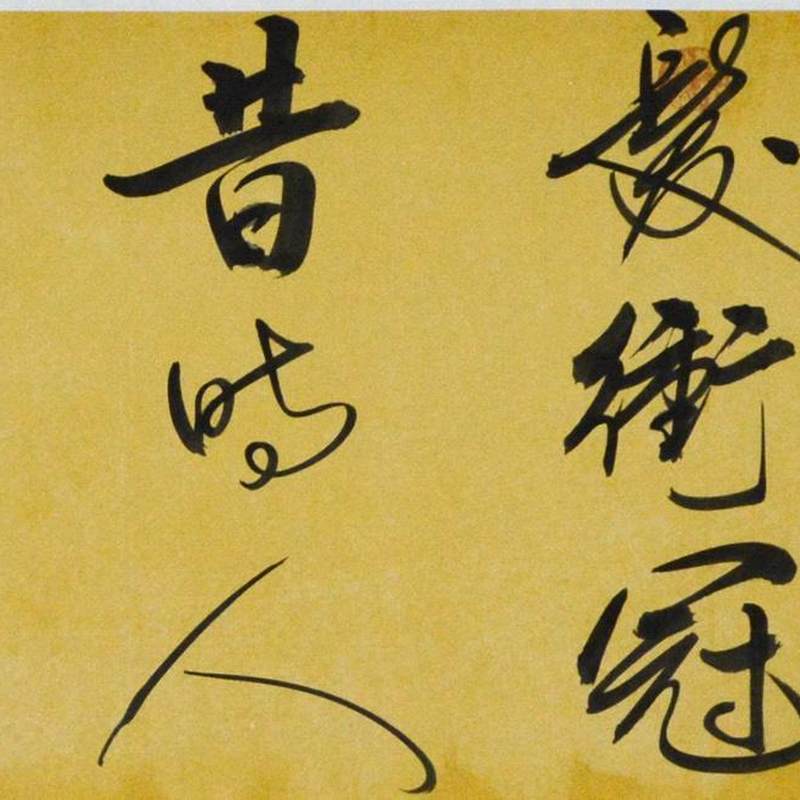 髮衝冠
昔時人